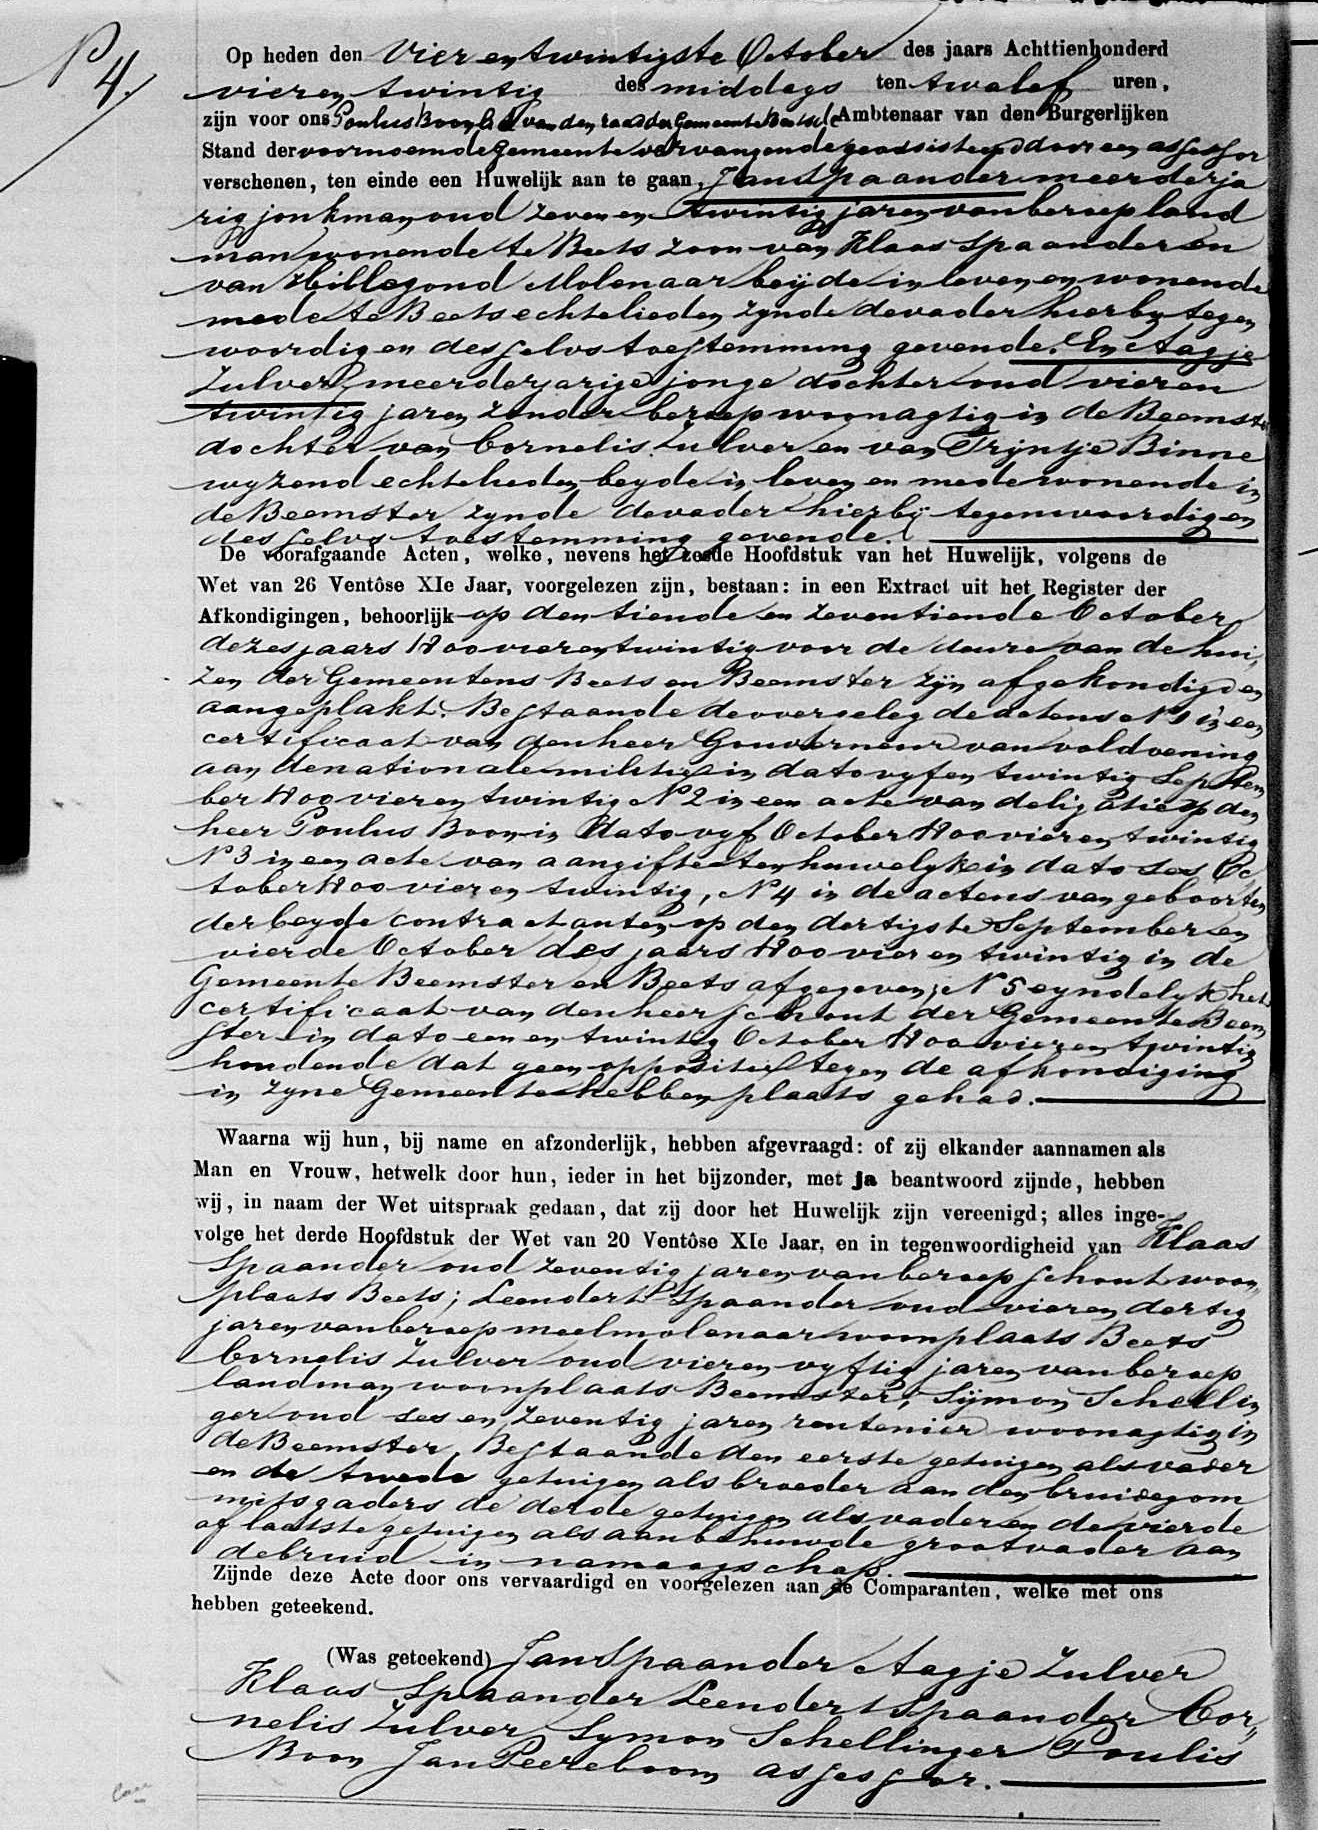 N 4.
Op heden den vier en twintigste October des jaars Achttienhonderd
vier en twintig des middags ten twalef uren,
zijn voor ons Poulus Boon Lid van den raad der Gemeente Beets Ambtenaar van den Burgerlijken
Stand der voornoemde gemeente vervangende geassisteerd door een assessor
verschenen, ten einde een Huwelijk aan te gaan, Jan Spaander meerderja
rig jonkman oud zeven en twintig jaren van beroep land
man wonende te Beets zoon van Klaas Spaander en
van Hillegond Molenaar beijde in leven en wonende
mede te Beets echtelieden zynde de vader hierby tegen
woordig en deszelvs toestemming gevende. En Aagje
Zulver, meerderjarige jonge dochter oud vier en
twintig jaren zonder beroep woonagtig in de Beemster
dochter van Cornelis Zulver en van Trijntje Binne
wyzend echtelieden beyde in leven en mede wonende in
de Beemster zynde de vader hierbij tegenwoordig en
deszelvs toestemming gevende.
De voorafgaande Acten, welke, nevens het zesde Hoofdstuk van het Huwelijk, volgens de
Wet van 26 Ventôse XIe Jaar, voorgelezen zijn, bestaan: in een Extract uit het Register der
Afkondigingen, behoorlijk op den tiende en zeventiende October
dezes jaars 1800 vier en twintig voor de deure van de hui,
zen der Gemeentens Beets en Beemster zijn afgekondigd en
aangeplakt. Bestaande de overgelegde actens N 1 in een
certificaat van den heer Gouverneur van voldoening
aan de nationale militie in dato vyf en twintig Septem
ber 1800 vier en twintig N 2 in een acte van deligatie op den
heer Poulus Boon in dato vyf October 1800 vier en twintig
N 3 in een acte van aangifte ten huwelyk in dato ses Oc
tober 1800 vier en twintig, N 4 in de actens van geboorten
der beyde contractanten op den dertigste September en
vierde October des jaars 1800 vier en twintig in de
Gemeente Beemster en Beets afgegeven; N 5 eyndelyk het
certificaat van den heer schout der Gemeente Beem
ster in dato een en twintig October 1800 vier en twintig
houdende dat geen oppositie tegen de afkondiging
in zyne Gemeente hebben plaats gehad.
Waarna wij hun, bij name en afzonderlijk, hebben afgevraagd: of zij elkander aannamen als
Man en Vrouw, hetwelk door hun, ieder in het bijzonder, met ja beantwoord zijnde, hebben
wij, in naam der Wet uitspraak gedaan, dat zij door het Huwelijk zijn vereenigd; alles inge-
volge het derde Hoofdstuk der Wet van 20 Ventôse XIe Jaar, en in tegenwoordigheid van Klaas
Spaander oud zeventig jaren van beroep schout woon„
plaats Beets; Leendert Spaander oud vier en dertig
jaren van beroep meelmolenaar woonplaats Beets
Cornelis Zulver oud vier en vyftig jaren van beroep
landman woonplaats Beemster; Sijmon Schellin
ger oud ses en zeventig jaren rentenier woonagtig in
de Beemster, Bestaande den eerste getuigen als vader
en de twede getuigen als broeder aan den bruidegom
mitsgaders de derde getuigen als vader en de vierde
of laatste getuigen als aanbehuwde grootvader aan
de bruid in namaagschap.
Zijnde deze Acte door ons vervaardigd en voorgelezen aan de Comparanten, welke met ons
hebben geteekend.
(Was geteekend) Jan Spaander Aagje Zulver
Klaas Spaander Leendert Spaander Cor„
nelis Zulver Symon Schellinger Poulis
Boon Jan Peereboom assessor.